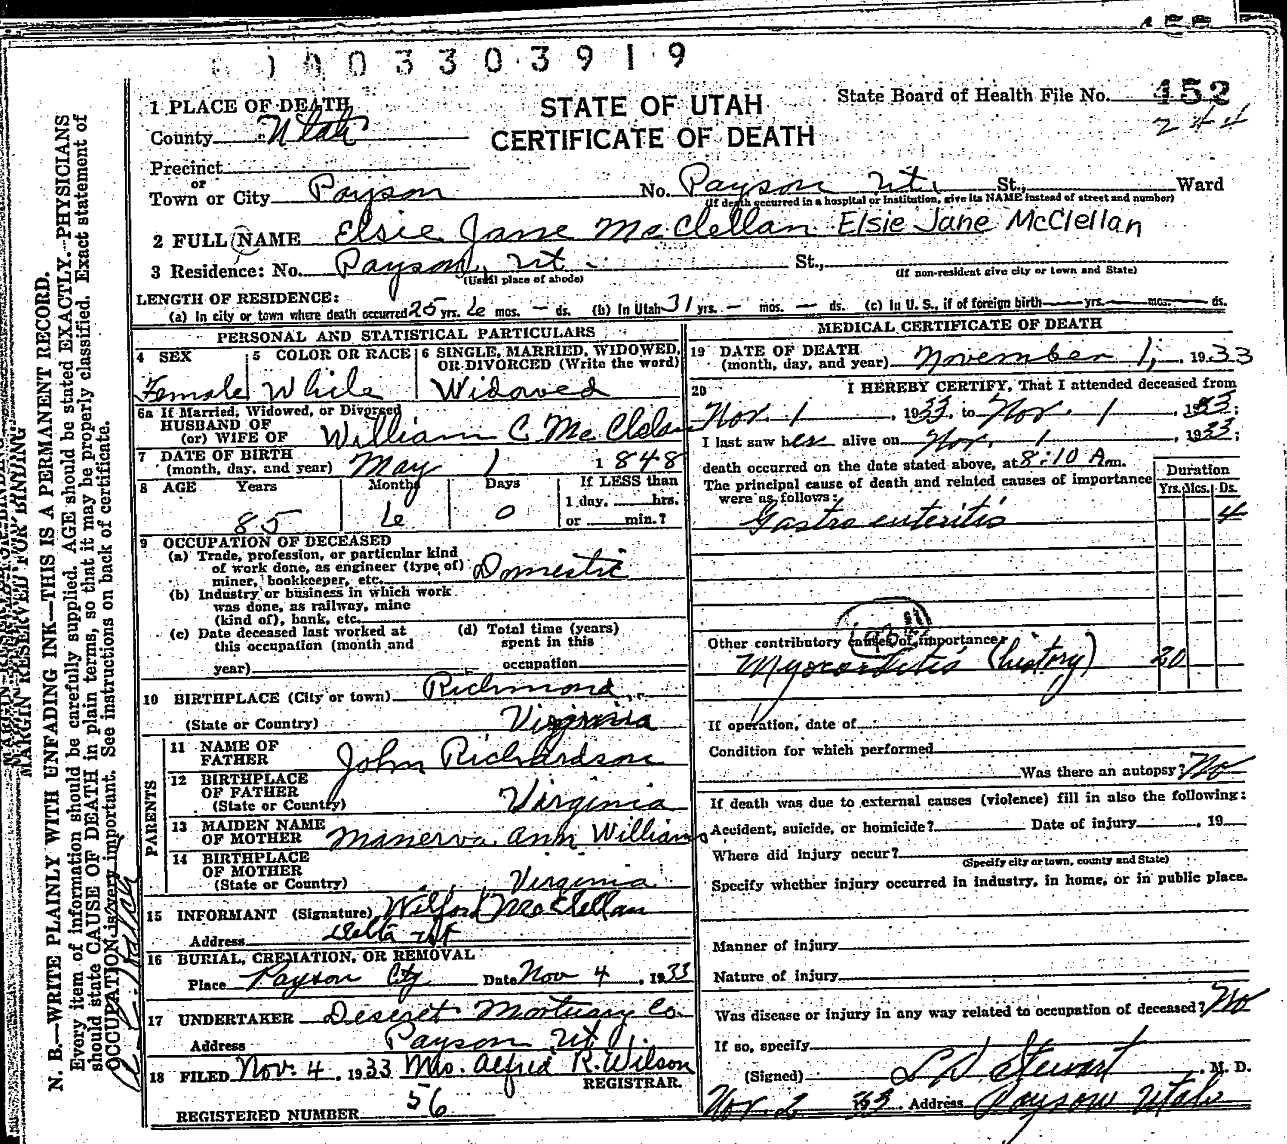 0 0 3 3 0 3 9 1 9
STATE OF UTAH
CERTIFICATE OF DEATH
State Board of Health File No. 452
244
1 PLACE OF DEATH
County Utah
Precinct
or
Town or City Payson No. Payson Ut. St., Ward
(If death occurred in a hospital or institution, give its NAME instead of street and number)
2 FULL NAME Elsie Jane McClellan Elsie Jane McClellan
3 Residence: No. Payson, Ut. St.,
(Usual place of abode) (If non-resident give city or town and State)
LENGTH OF RESIDENCE:
(a) In city or town where death occurred 25 yrs. 6 mos. – ds. (b) In Utah 31 yrs. – mos. – ds. (c) In U. S., if of foreign birth yrs. mos. ds.
PERSONAL AND STATISTICAL PARTICULARS
4 SEX Female
5 COLOR OR RACE White
6 SINGLE, MARRIED, WIDOWED, OR DIVORCED (Write the word) Widowed
6a If Married, Widowed, or Divorced
HUSBAND OF
(or) WIFE OF William C. McClelan
7 DATE OF BIRTH
(month, day, and year) May 1 1848
8 AGE Years Months Days If LESS than
1 day, hrs.
85 6 0 or min.?
9 OCCUPATION OF DECEASED
(a) Trade, profession, or particular kind
of work done, as engineer (type of)
miner, bookkeeper, etc. Domestic
(b) Industry or business in which work
was done, as railway, mine
(kind of), bank, etc.
(c) Date deceased last worked at
this occupation (month and
year)
(d) Total time (years)
spent in this
occupation
10 BIRTHPLACE (City or town) Richmond,
(State or Country) Virginia
PARENTS
11 NAME OF
FATHER John Richardson
12 BIRTHPLACE
OF FATHER
(State or Country) Virginia
13 MAIDEN NAME
OF MOTHER Manerva Ann Williams
14 BIRTHPLACE
OF MOTHER
(State or Country) Virginia
15 INFORMANT (Signature) Wilford McClellan
Address Delta Ut
16 BURIAL, CREMATION, OR REMOVAL
Place Payson City Date Nov 4, 1933
17 UNDERTAKER Deseret Mortuary Co.
Address Payson Ut.
18 FILED Nov. 4, 1933 Mrs. Alfred R. Wilson
REGISTRAR.
REGISTERED NUMBER 56
MEDICAL CERTIFICATE OF DEATH
19 DATE OF DEATH
(month, day, and year) November 1, 1933
20 I HEREBY CERTIFY, That I attended deceased from
Nov. 1, 1933 to Nov. 1, 1933;
I last saw her alive on Nov. 1, 1933;
death occurred on the date stated above, at 8:10 A.m.
The principal cause of death and related causes of importance
were as follows:
Duration
Yrs. Mos. Ds.
Gastro enteritis 4
Other contributory causes of importance:
Myocarditis (history) 20
If operation, date of
Condition for which performed
Was there an autopsy? No
If death was due to external causes (violence) fill in also the following:
Accident, suicide, or homicide? Date of injury , 19
Where did injury occur?
(Specify city or town, county and State)
Specify whether injury occurred in industry, in home, or in public place.
Manner of injury
Nature of injury
Was disease or injury in any way related to occupation of deceased? No
If so, specify
(Signed) L D Stewart M. D.
Nov. 2 1933. Address Payson Utah
MARGIN RESERVED FOR BINDING
N. B.—WRITE PLAINLY WITH UNFADING INK—THIS IS A PERMANENT RECORD.
Every item of information should be carefully supplied. AGE should be stated EXACTLY. PHYSICIANS
should state CAUSE OF DEATH in plain terms, so that it may be properly classified. Exact statement of
OCCUPATION is very important. See instructions on back of certificate.